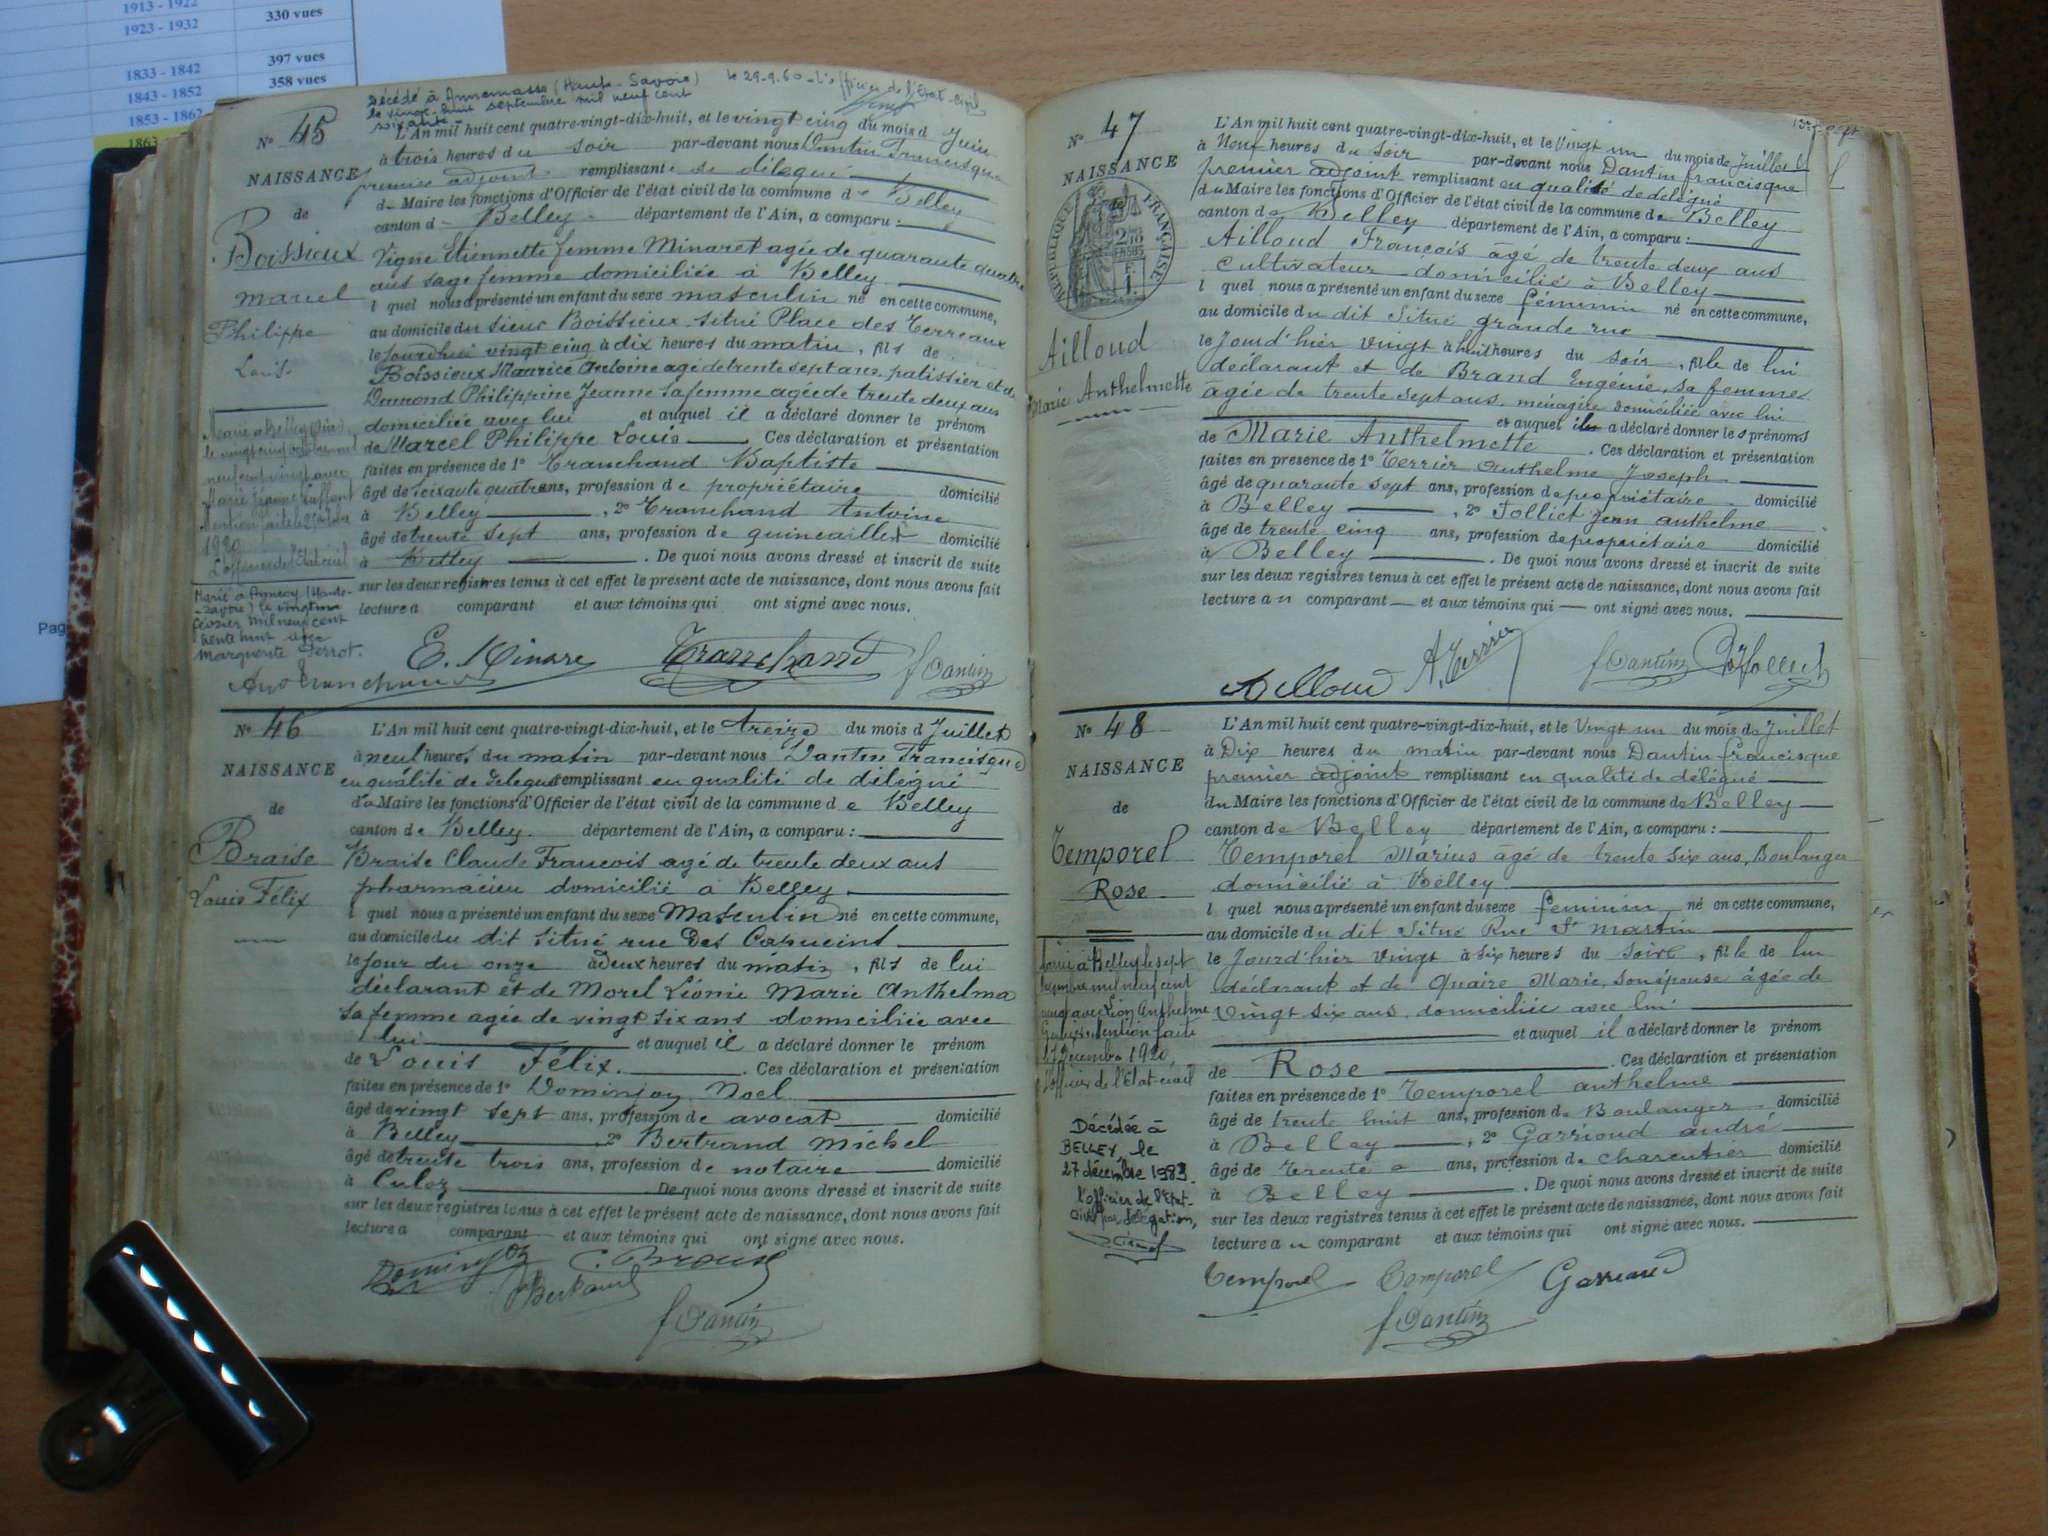 1913 - 1922
1923 - 1932
330 vues
1833 - 1842
397 vues
1843 - 1852
358 vues
1853 - 1862
1863
Pag
Décédé à Annemasse (Haute-Savoie) le 29-9-60 - L'officier de l'Etat-Civil
le vingt huit septembre mil neuf cent
soixante -
N° 45
NAISSANCE
de
Boissieux
Marcel
Philippe
Louis
Marié à Belley (Ain)
le vingt cinq octobre mil
neuf cent vingt avec
Marie Jeanne
Mention faite le
1920
L'officier de l'Etat civil
Marié à Annecy (Haute-
-Savoie) le vingt
février mil neuf cent
trente huit avec
Marguerite Perrot.
L'An mil huit cent quatre-vingt-dix-huit, et le vingt cinq du mois d Juin
à trois heures du soir par-devant nous Dantin Francisque
premier adjoint remplissant de délégué
du Maire les fonctions d'Officier de l'état civil de la commune de Belley
canton de Belley département de l'Ain, a comparu :
Vigne Etiennette femme Minaret agée de quarante quatre
ans sage femme domiciliée à Belley
l quel nous a présenté un enfant du sexe masculin né en cette commune,
au domicile du sieur Boissieux situé Place des Terreaux
le jourdhui vingt cinq à dix heures du matin, fils de
Boissieux Maurice Antoine agé de trente sept ans, patissier et de
Dumond Philippine Jeanne sa femme agée de trente deux ans
domiciliée avec lui et auquel il a déclaré donner le prénom
de Marcel Philippe Louis . Ces déclaration et présentation
faites en présence de 1° Tranchand Baptiste
âgé de soixante quatre ans, profession de propriétaire domicilié
à Belley , 2° Tranchand Antoine
âgé de trente sept ans, profession de quincailler domicilié
à Belley . De quoi nous avons dressé et inscrit de suite
sur les deux registres tenus à cet effet le présent acte de naissance, dont nous avons fait
lecture a comparant et aux témoins qui ont signé avec nous.
E. Minare Tranchand f Dantin
N° 46
NAISSANCE
de
Braise
Louis Félix
L'An mil huit cent quatre-vingt-dix-huit, et le treize du mois d Juillet
à neuf heures du matin par-devant nous Dantin Francisque
en qualité de délégué remplissant en qualité de délégué
du Maire les fonctions d'Officier de l'état civil de la commune de Belley
canton de Belley département de l'Ain, a comparu :
Braise Claude Francois agé de trente deux ans
pharmacien domicilié à Belley
l quel nous a présenté un enfant du sexe Masculin né en cette commune,
au domicile du dit situé rue Des Capucins
le jour du onze à deux heures du matin, fils de lui
déclarant et de Morel Léonie Marie Anthelma
sa femme agée de vingt six ans domiciliée avec
lui et auquel il a déclaré donner le prénom
de Louis Félix. . Ces déclaration et présentation
faites en présence de 1° Dominjoy Noel
âgé de vingt sept ans, profession de avocat domicilié
à Belley , 2° Bertrand Michel
âgé de trente trois ans, profession de notaire domicilié
à Culoz . De quoi nous avons dressé et inscrit de suite
sur les deux registres tenus à cet effet le présent acte de naissance, dont nous avons fait
lecture a comparant et aux témoins qui ont signé avec nous.
C. Braise
Bertrand
f Dantin
N° 47
NAISSANCE
de
RÉPUBLIQUE FRANÇAISE
Ailloud
Marie Anthelmette
L'An mil huit cent quatre-vingt-dix-huit, et le Vingt un du mois de Juillet
à Neuf heures du Soir par-devant nous Dantin francisque
premier adjoint remplissant en qualité de délégué
du Maire les fonctions d'Officier de l'état civil de la commune de Belley
canton de Belley département de l'Ain, a comparu :
Ailloud François âgé de trente deux ans
cultivateur domicilié à Belley
l quel nous a présenté un enfant du sexe féminin né en cette commune,
au domicile du dit Situé grande rue
le Jourd'hier vingt à huit heures du soir, fille de lui
déclarant et de Brand Eugénie, sa femme
âgée de trente sept ans, ménagère domiciliée avec lui
et auquel il a déclaré donner les prénoms
de Marie Anthelmette . Ces déclaration et présentation
faites en presence de 1° Terrier Anthelme Joseph
âgé de quarante sept ans, profession de propriétaire domicilié
à Belley , 2° Folliet Jean anthelme
âgé de trente cinq ans, profession de propriétaire domicilié
à Belley . De quoi nous avons dressé et inscrit de suite
sur les deux registres tenus à cet effet le présent acte de naissance, dont nous avons fait
lecture au comparant et aux témoins qui ont signé avec nous.
Ailloud A. Terrier f Dantin
N° 48
NAISSANCE
de
Temporel
Rose
Marié à Belley le sept
mil neuf cent
vingt avec Léon Anthelme
Mention faite
17 décembre 1920
L'officier de l'Etat-civil
Décédée à
BELLEY, le
27 décembre 1983.
l'officier de l'Etat-
civil par délégation,
L'An mil huit cent quatre-vingt-dix-huit, et le Vingt un du mois de Juillet
à Dix heures du matin par-devant nous Dantin francisque
premier adjoint remplissant en qualité de délégué
du Maire les fonctions d'Officier de l'état civil de la commune de Belley
canton de Belley département de l'Ain, a comparu :
Temporel Marius âgé de trente six ans, Boulanger
domicilié à Belley
l quel nous a présenté un enfant du sexe feminin né en cette commune,
au domicile du dit Situé Rue St martin
le Jourd'hier vingt à six heures du soir, fille de lui
déclarant et de Quaire Marie, son épouse âgée de
vingt six ans domiciliée avec lui
et auquel il a déclaré donner le prénom
de Rose . Ces déclaration et présentation
faites en présence de 1° Temporel anthelme
âgé de trente huit ans, profession de Boulanger domicilié
à Belley , 2° Garrioud andré
âgé de trente ans, profession de charcutier domicilié
à Belley . De quoi nous avons dressé et inscrit de suite
sur les deux registres tenus à cet effet le présent acte de naissance, dont nous avons fait
lecture au comparant et aux témoins qui ont signé avec nous.
Temporel Temporel Garrioud
f Dantin